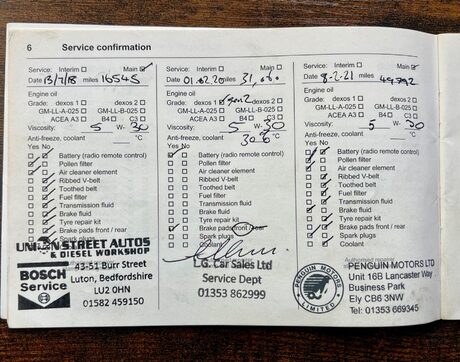 6 Service confirmation
Service: Interim Main
Date 13/7/18 miles 16545
Engine oil
Grade: dexos 1 dexos 2
GM-LL-A-025 GM-LL-B-025
ACEA A3 B4 C3
Viscosity: 5 W- 30
Anti-freeze, coolant °C
Yes No
Battery (radio remote control)
Pollen filter
Air cleaner element
Ribbed V-belt
Toothed belt
Fuel filter
Transmission fluid
Brake fluid
Tyre repair kit
Brake pads front / rear
Spark plugs
UNION STREET AUTOS
& DIESEL WORKSHOP
BOSCH
Service
43-51 Burr Street
Luton, Bedfordshire
LU2 0HN
01582 459150
Service: Interim Main
Date 01.02.20 miles
Engine oil
Grade: dexos 1 dexos 2
GM-LL-A-025 GM-LL-B-025
ACEA A3 B4 C3
Viscosity: 5 W- 30
Anti-freeze, coolant °C
Yes No
Battery (radio remote control)
Pollen filter
Air cleaner element
Ribbed V-belt
Toothed belt
Fuel filter
Transmission fluid
Brake fluid
Tyre repair kit
Brake pads front / rear
Spark plugs
Coolant
L.G. Car Sales Ltd
Service Dept
01353 862999
Service: Interim Main
Date 8.2.21 miles
Engine oil
Grade: dexos 1 dexos 2
GM-LL-A-025 GM-LL-B-025
ACEA A3 B4 C3
Viscosity: 5 W- 30
Anti-freeze, coolant °C
Yes No
Battery (radio remote control)
Pollen filter
Air cleaner element
Ribbed V-belt
Toothed belt
Fuel filter
Transmission fluid
Brake fluid
Tyre repair kit
Brake pads front / rear
Spark plugs
Coolant
PENGUIN MOTORS
LIMITED
PENGUIN MOTORS LTD
Unit 16B Lancaster Way
Business Park
Ely CB6 3NW
Tel: 01353 669345